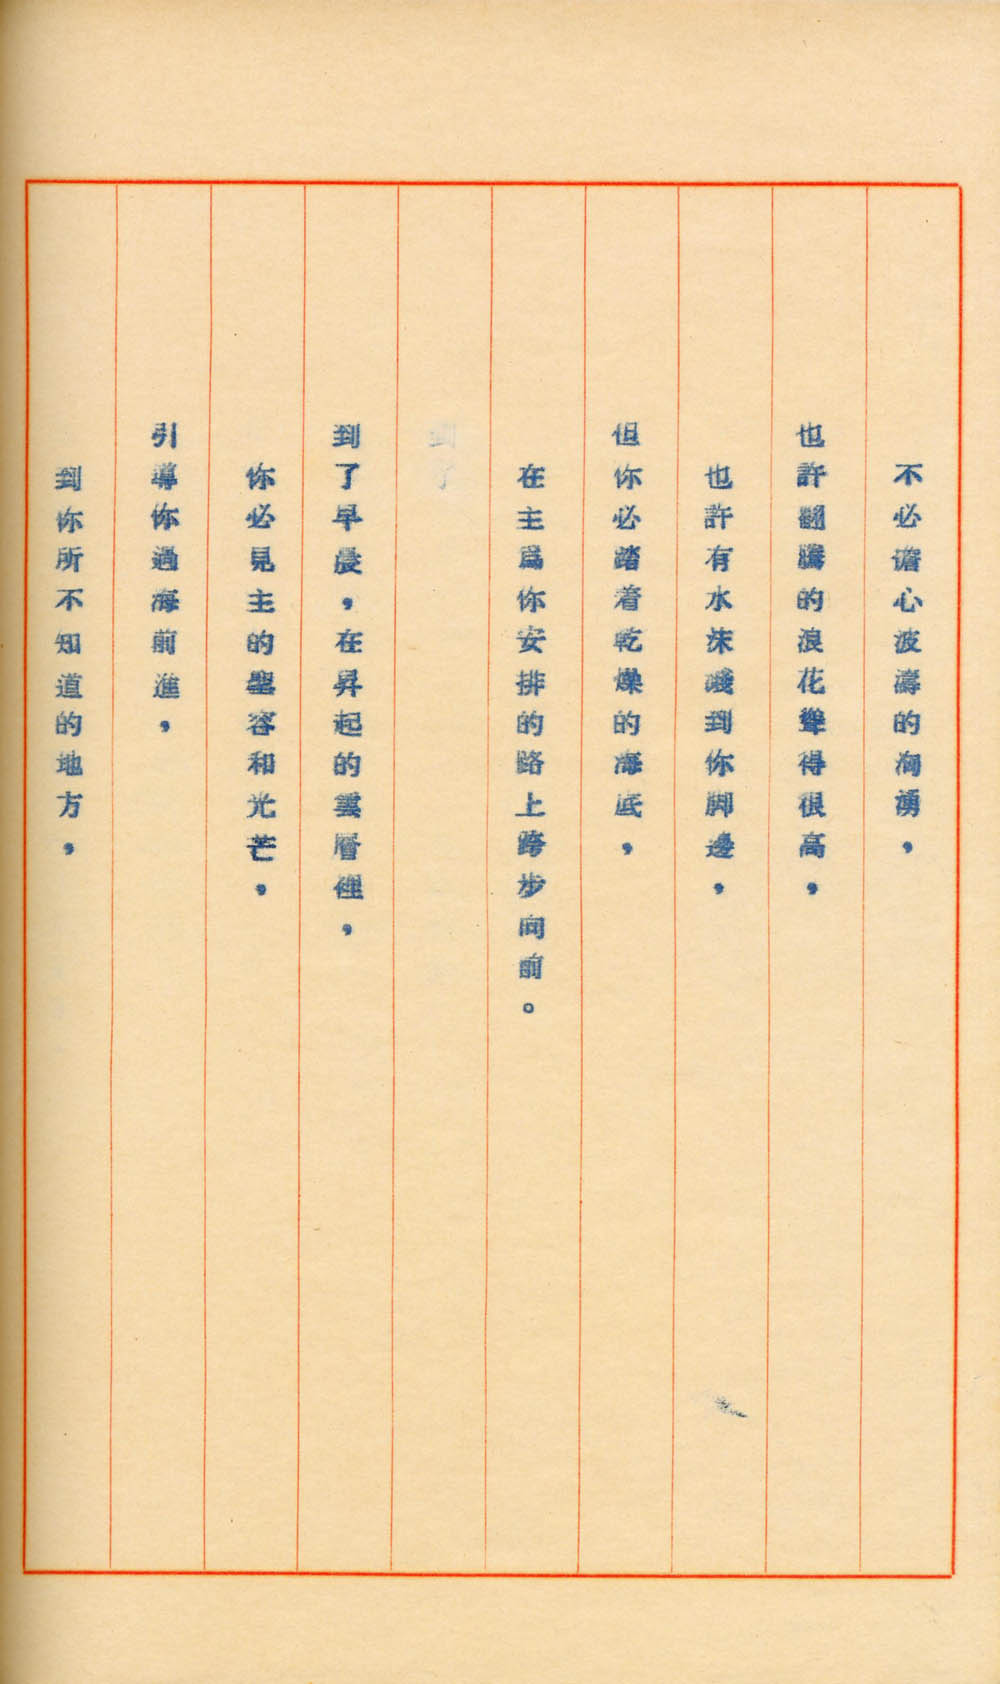 不必擔心波濤的洶湧，
也許翻騰的浪花聳得很高，
也許有水沫濺到你脚邊，
但你必踏着乾燥的海底，
在主爲你安排的路上跨步向前。
到了
到了早晨，在昇起的雲層裡，
你必見主的聖容和光芒，
引導你過海前進，
到你所不知道的地方，